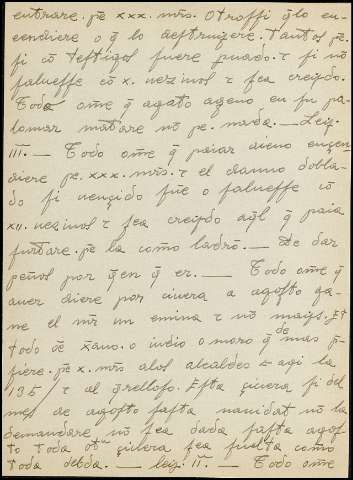 entrare. pe xxx. mrs. Otrossi qlo en-
cendiere o q lo destruyere. tantos pe.
si cõ testigos fuere prouado. τ si nõ
salvesse cõ x. uezinos τ sea creydo.
Todo ome q agato ageno en su pa-
lomar matare nõ pe. nada. — Leiẏ.
III. — Todo ome q paiar aieno encen
diere pe. xxx. mrs. τ el danno dobla-
do si uençido fue o salvesse cõ
xii. uezinos τ sea creydo aql q paia
furtare. pe la como ladrõ. — De dar
peños por qen q er. — Todo ome q
auer diere por ciuera a agosto ga-
ne el mr un emina τ nõ mays. Et
todo õe xauo. o iudio o moro q de mas p-
siere. pe x. mrs alos alcaldes
135 / τ al qrelloso. Esta çiuera si del
mes de agosto fasta nauidat nõ la
demandare nõ sea dada fasta agos-
to toda otra çiuera sea suelta como
toda debda. — leiẏ. II. — Todo ome